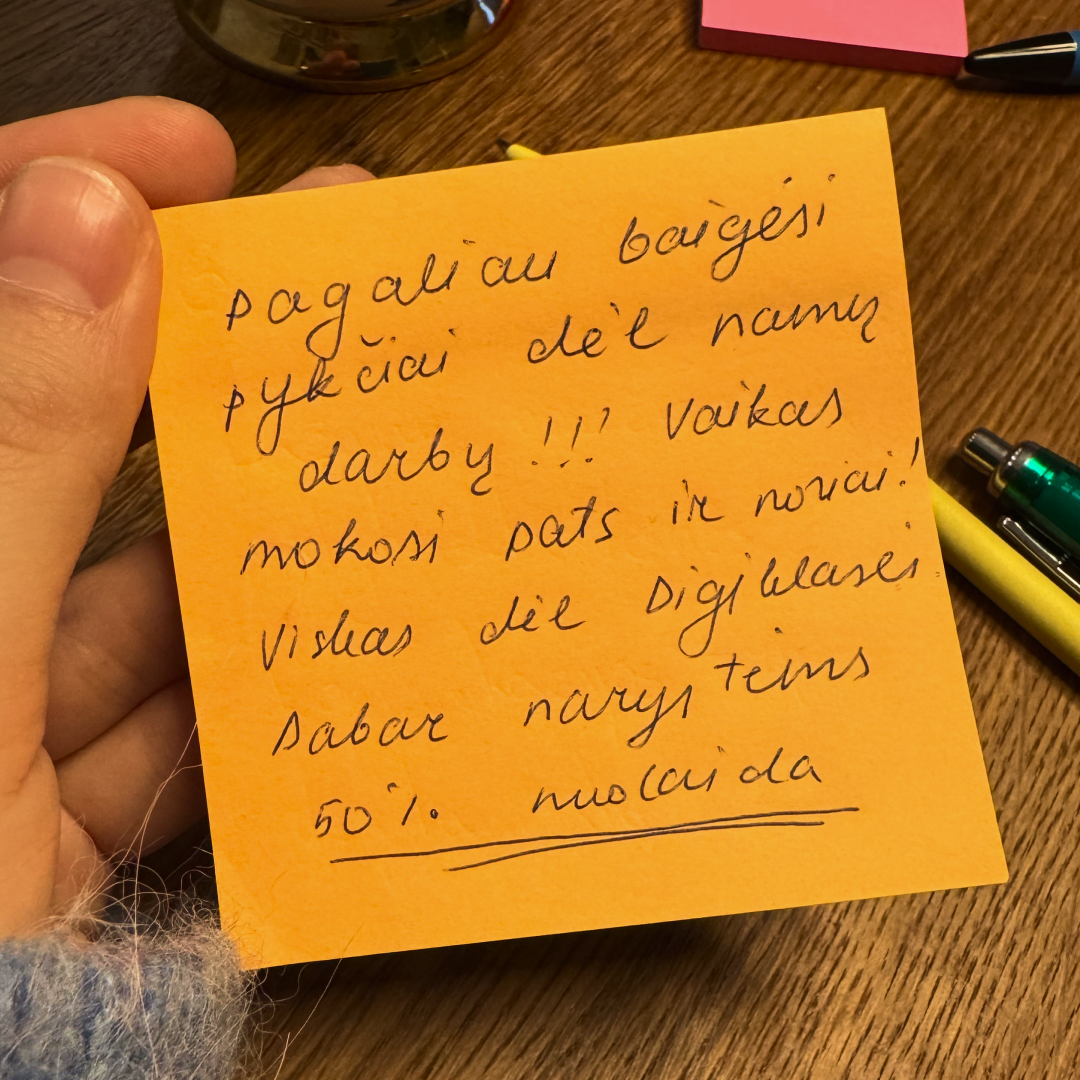 Pagaliau baigėsi
pykčiai dėl namų
darbų !!! Vaikas
mokosi pats ir noriai!
Viskas dėl Digiklasės.
Dabar narystėms
50% nuolaida